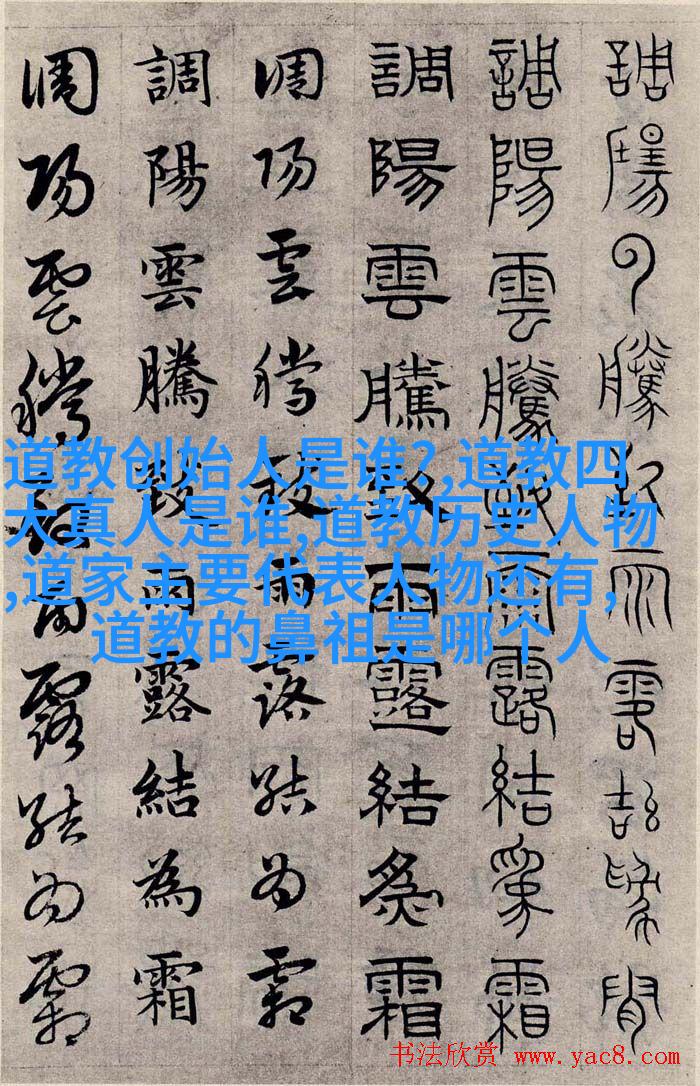 調陽云騰致雨露結為霜
調陽雲騰致雨露結為霜
調陽雲騰致雨露結為霜
調陽雲騰致雨露結為霜
調陽雲騰致雨露結為霜
調陽雲騰致雨露結為霜
道教创始人是谁?,道教四
大真人是谁,道教历史人物
,道家主要代表人物还有,
道教的鼻祖是哪个人
书法欣赏 www.yac8.com